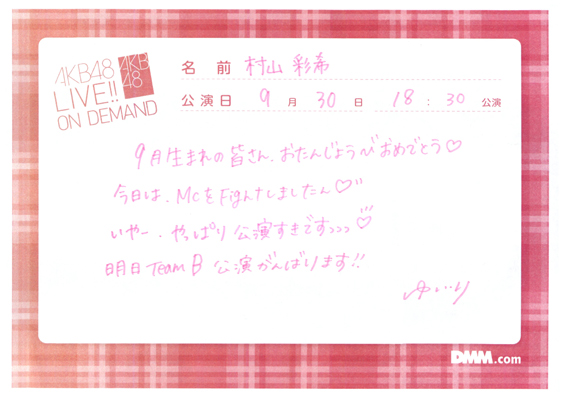 AKB48
LIVE!!
ON DEMAND
AKB
48
名前 村山 彩希
公演日 9月30日 18:30公演
9月生まれの皆さん、おたんじょうびおめでとう♡
今日は、MCをFightしましたん♡"
いやー、やっぱり公演すきですっっっ♡
明日TeamB 公演がんばります!!
ゆいり
DMM.com